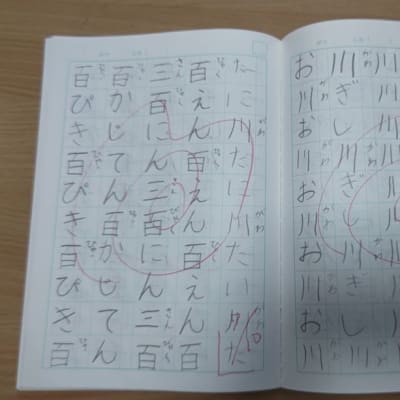 川ぎし川ぎし川ぎし川
お川お川お川お川お川
たに川たに川たに川た
百えん百えん百えん百
三百にん三百にん三百
百かじてん百かじてん
百ぴき百ぴき百ぴき百